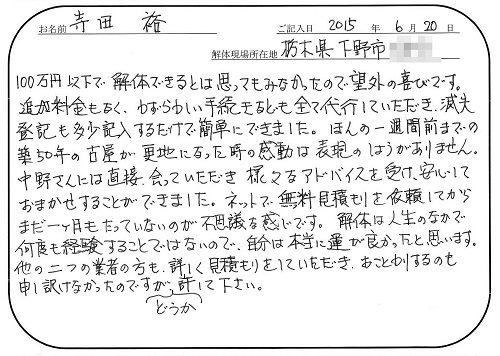 お名前 寺田 裕 ご記入日 2015 年 6 月 20 日
解体現場所在地 栃木県下野市
100万円以下で解体できるとは思ってもみなかったので望外の喜びです。
追加料金もなく、わずらわしい手続きなども全て代行していただき、滅失
登記も多少記入するだけで簡単にできました。ほんの一週間前までの
築50年の古屋が更地になった時の感動は表現のしようがありません。
中野さんには直接会っていただき様々なアドバイスを受け、安心して
おまかせすることができました。ネットで無料見積もりを依頼してから
まだ一ヶ月もたっていないのが不思議な感じです。解体は人生のなかで
何度も経験することではないので、自分は本当に運が良かったと思います。
他の二つの業者の方も、詳しく見積もりをしていただき、おことわりするのも
申し訳けなかったのですが、許して下さい。
どうか